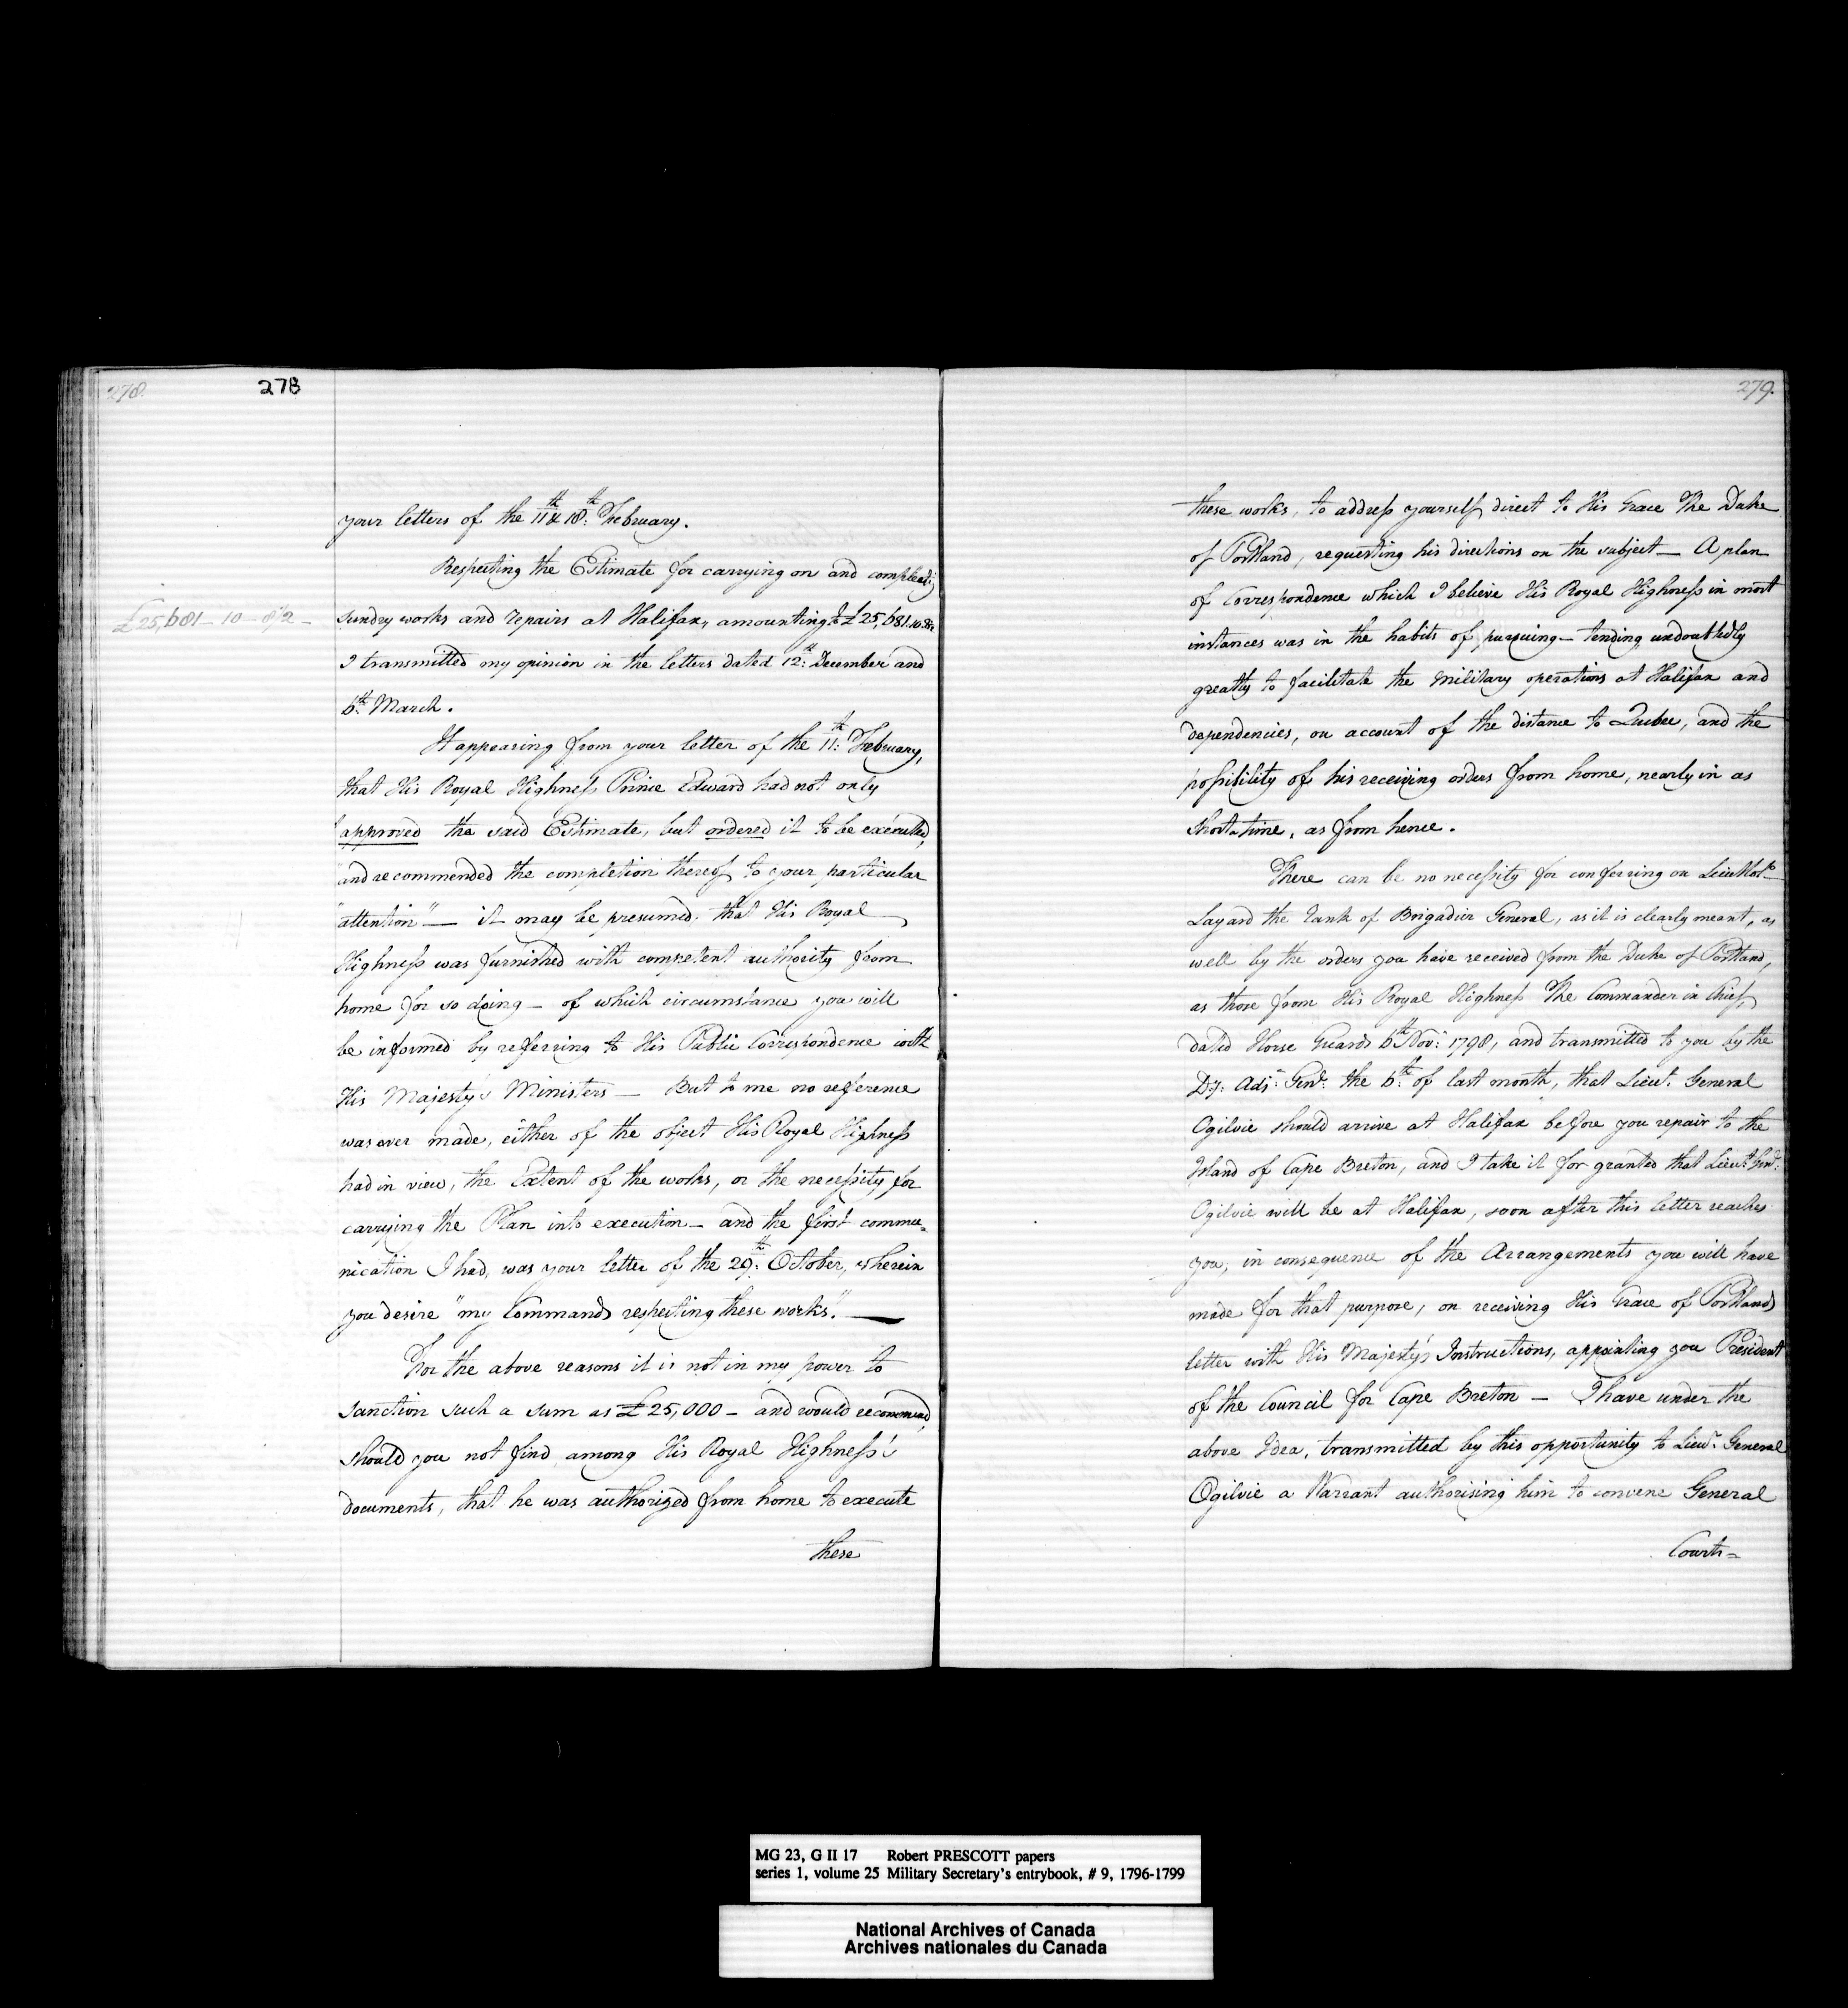 278.
278
your letters of the 11th & 18th: February.
Respecting the Estimate for carrying on and compleatg
£25,681-10-8½-
sundry works and repairs at Halifax, amounting to £25,681.10.8½
I transmitted my opinion in the letters dated 12th: December and
6th: March.
It appearing from your letter of the 11th: February,
that His Royal Highness Prince Edward had not only
"approved the said Estimate, but ordered it to be executed,
"and recommended the completion thereof to your particular
"attention" — it may be presumed, that His Royal
Highness was furnished with competent authority from
home for so doing — of which circumstance you will
be informed by referring to His Public Correspondence with
His Majesty's Ministers — But to me no reference
was ever made, either of the object His Royal Highness
had in view, the Extent of the works, or the necessity for
carrying the Plan into execution — and the first commu=
nication I had, was your letter of the 29th: October, wherein
you desire "my Commands respecting these works". —
For the above reasons it is not in my power to
sanction such a sum as £25,000 — and would recommend,
should you not find among His Royal Highness's
documents, that he was authorized from home to execute
these
279.
these works, to address yourself direct to His Grace The Duke
of Portland, requesting his directions on the subject — A plan
of Correspondence which I believe His Royal Highness in most
instances was in the habits of pursuing — tending undoubtedly
greatly to facilitate the Military operations at Halifax and
dependencies, on account of the distance to Quebec, and the
possibility of his receiving orders from home, nearly in as
short time, as from hence.
There can be no necessity for conferring on Lieut Col:
Layard the rank of Brigadier General, as it is clearly meant, as
well by the orders you have received from the Duke of Portland,
as those from His Royal Highness The Commander in Chief,
dated Horse Guards 6th Novr: 1798, and transmitted to you by the
Dy: Adjt: Genl: the 6th: of last month, that Lieut. General
Ogilvie should arrive at Halifax before you repair to the
Island of Cape Breton, and I take it for granted that Lieut: Genl:
Ogilvie will be at Halifax, soon after this letter reaches
you, in consequence of the Arrangements you will have
made for that purpose, on receiving His Grace of Portland's
letter with His Majesty's Instructions, appointing you President
of the Council for Cape Breton — I have under the
above Idea, transmitted by this opportunity to Lieut. General
Ogilvie a Warrant authorising him to convene General
Courts=
MG 23, G II 17 Robert PRESCOTT papers
series 1, volume 25 Military Secretary's entrybook, # 9, 1796-1799
National Archives of Canada
Archives nationales du Canada